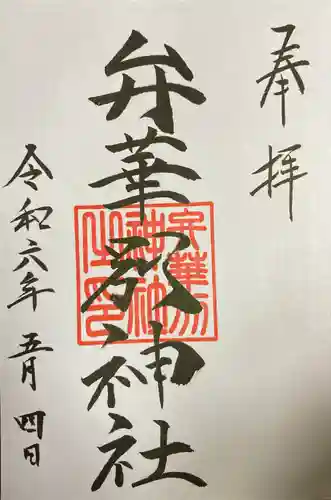 奉拝
弁華別神社
弁華別神社之印
令和六年 五月 四日